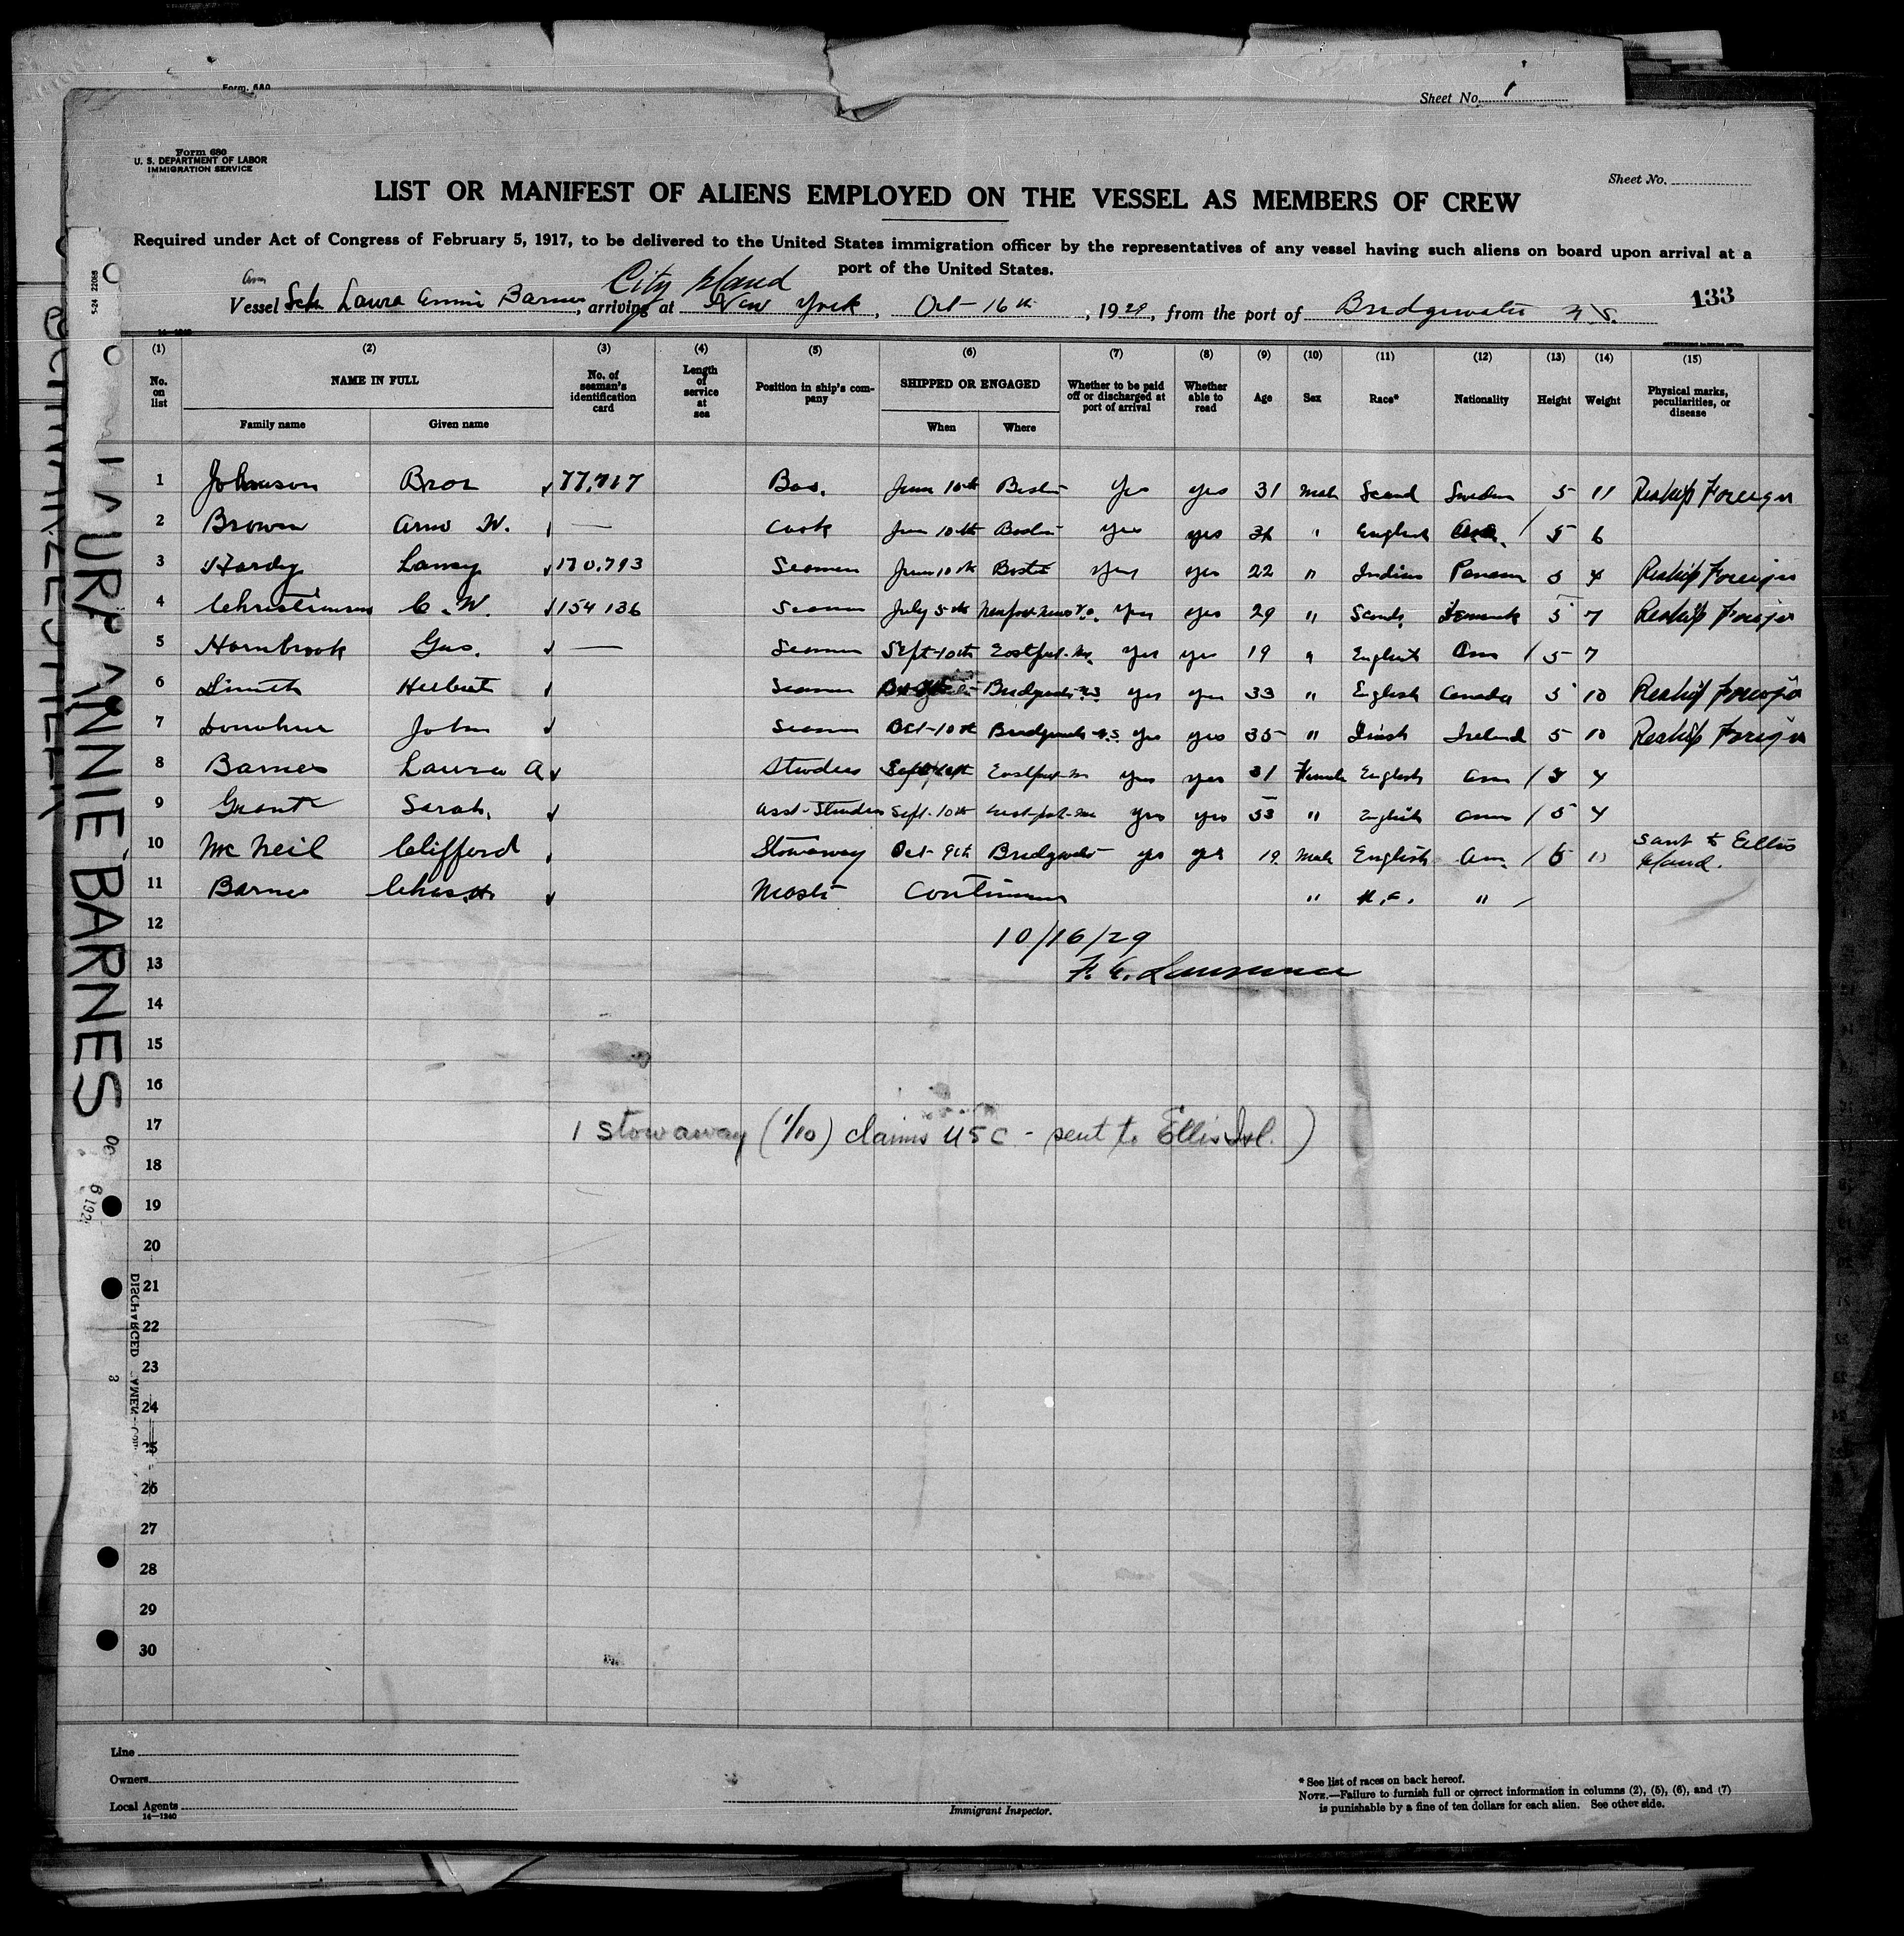 Form 680
Sheet No. 1
Form 680
U. S. DEPARTMENT OF LABOR
IMMIGRATION SERVICE
Sheet No.
LIST OR MANIFEST OF ALIENS EMPLOYED ON THE VESSEL AS MEMBERS OF CREW
Required under Act of Congress of February 5, 1917, to be delivered to the United States immigration officer by the representatives of any vessel having such aliens on board upon arrival at a
port of the United States.
City Island
Am
Vessel Sch Laura Annie Barnes, arriving at New York, Oct 16th, 1929, from the port of Bridgewater N.S.
133
(1) (2) (3) (4) (5) (6) (7) (8) (9) (10) (11) (12) (13) (14) (15)
No. on list NAME IN FULL No. of seaman's identification card Length of service at sea Position in ship's company SHIPPED OR ENGAGED Whether to be paid off or discharged at port of arrival Whether able to read Age Sex Race* Nationality Height Weight Physical marks, peculiarities, or disease
Family name Given name When Where
1 Johnson Bror 77,717 Bos. June 10th Boston yes yes 31 Male Scand Sweden 5 11 Reship Foreign
2 Brown Arno W. — Cook June 10th Boston yes yes " English 5 6
3 Hardy 170,793 Seaman June 10th Boston yes yes 22 " Indian Panama 5 4 Reship Foreign
4 Christianson C. W. 154136 Seaman July 5th Newport News Va. yes yes 29 " Scand. Denmark 5 7 Reship Foreign
5 Hornbrook Gus. — Seaman Sept-10th Eastport-Me. yes yes 19 " English Am / 5 7
6 Herbert Seaman Bridgewater N.S yes yes 33 " English Canada 5 10 Reship Foreign
7 Donohue John Seaman Oct-10th Bridgewater N.S. yes yes 35 " Irish Ireland 5 10 Reship Foreign
8 Barnes Laura A Stewdess Eastport-Me yes yes 31 Female English Am / 5 4
9 Grant Sarah. Asst-Stewdess Sept-10th East-port-Me yes yes 53 " English Am / 5 4
10 McNeil Clifford Stowaway Oct-9th Bridgewater yes yes 19 Male English Am. / 5 11 Sent to Ellis Island.
11 Barnes Chas. H. Master Continuous " " /
12 10/16/29
13 F. C. Lawrence
14
15
16
17 1 stowaway (1/10) claims USC - sent to Ellis Isl. )
18
19
20
21
22
23
24
25
26
27
28
29
30
Line
Owners
Local Agents
14—1240
Immigrant Inspector.
* See list of races on back hereof.
NOTE.—Failure to furnish full or correct information in columns (2), (5), (6), and (7)
is punishable by a fine of ten dollars for each alien. See other side.
ANNIE BARNES